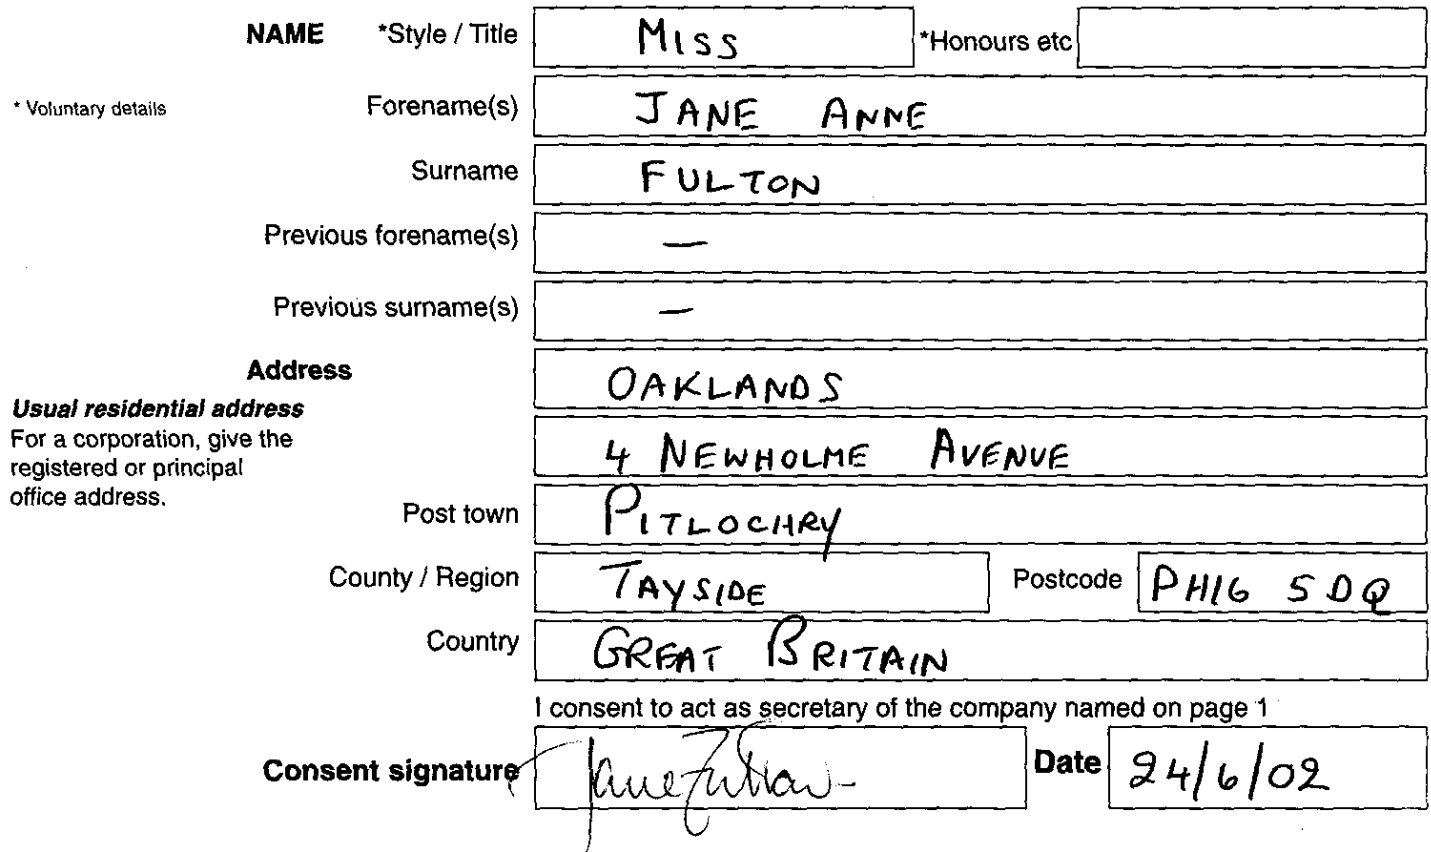 NAME *Style / Title MISS *Honours etc
* Voluntary details Forename(s) JANE ANNE
Surname FULTON
Previous forename(s) —
Previous surname(s) —
Address OAKLANDS
Usual residential address
For a corporation, give the
registered or principal
office address.
4 NEWHOLME AVENUE
Post town PITLOCHRY
County / Region TAYSIDE Postcode PH16 5DQ
Country GREAT BRITAIN
I consent to act as secretary of the company named on page 1
Consent signature Jane Fulton Date 24/6/02